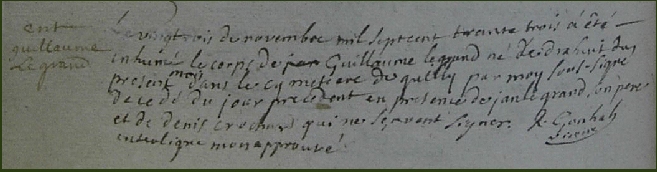 ent
guillaume
Le grand
Le vingt trois de novembre mil sept cent trante trois a été
inhumé le corps de Guillaume legrand né dix huit du
present mois dans le cymetiere de par moy sous signé
decedé du jour precedent en presence de jan le grand son pere
et de denis crochard qui ne scavent signer. R. Gonhah
interligne mon approuvé